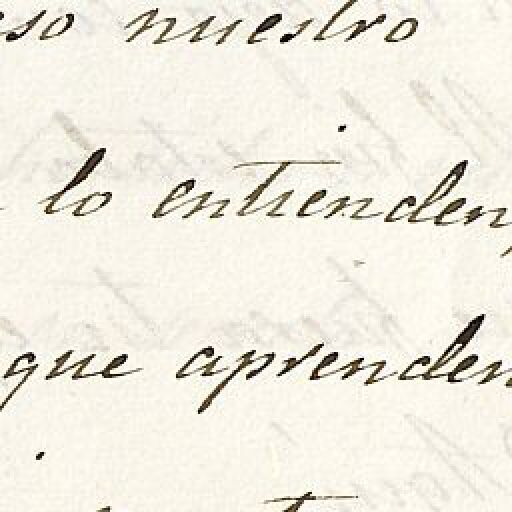 eso nuestro
lo entienden,
que aprenden